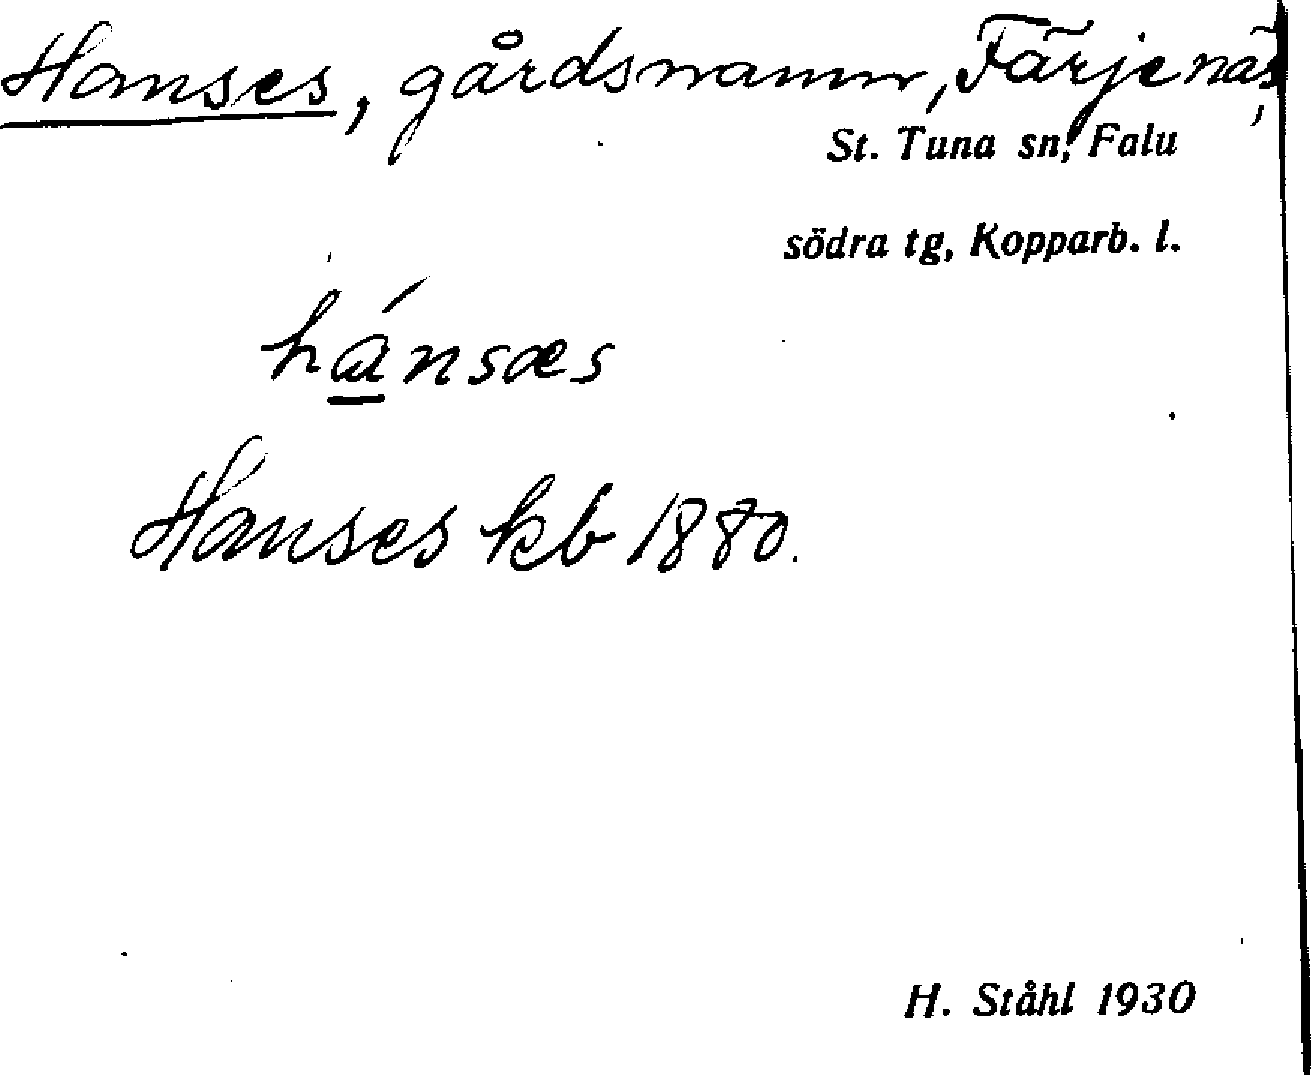 Hanses, gårdsnamn, Färjenäs,
St. Tuna sn, Falu
södra tg, Kopparb. l.
hánsæs
Hanses kb 1880.
H. Ståhl 1930